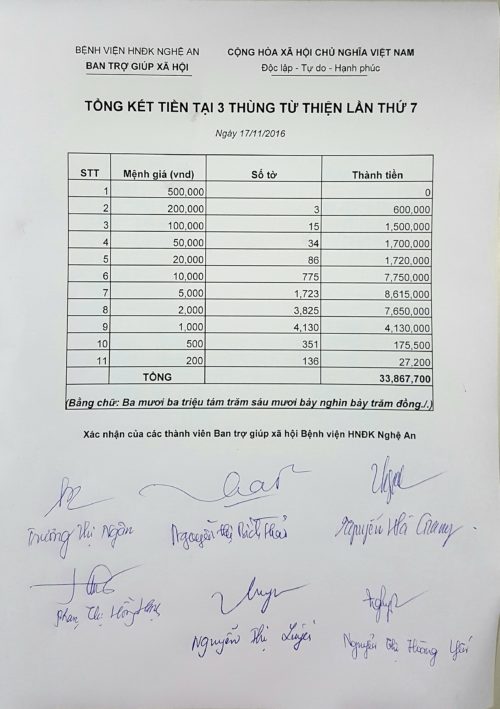 BỆNH VIỆN HNĐK NGHỆ AN
BAN TRỢ GIÚP XÃ HỘI
CỘNG HÒA XÃ HỘI CHỦ NGHĨA VIỆT NAM
Độc lập - Tự do - Hạnh phúc
TỔNG KẾT TIỀN TẠI 3 THÙNG TỪ THIỆN LẦN THỨ 7
Ngày 17/11/2016
STT Mệnh giá (vnd) Số tờ Thành tiền
1 500,000 0
2 200,000 3 600,000
3 100,000 15 1,500,000
4 50,000 34 1,700,000
5 20,000 86 1,720,000
6 10,000 775 7,750,000
7 5,000 1,723 8,615,000
8 2,000 3,825 7,650,000
9 1,000 4,130 4,130,000
10 500 351 175,500
11 200 136 27,200
TỔNG 33,867,700
(Bằng chữ: Ba mươi ba triệu tám trăm sáu mươi bảy nghìn bảy trăm đồng./.)
Xác nhận của các thành viên Ban trợ giúp xã hội Bệnh viện HNĐK Nghệ An
Trương Thị Ngân Nguyễn Thị Bích Nguyễn
Phan Thị Nguyễn Thị Nguyễn Thị Hương